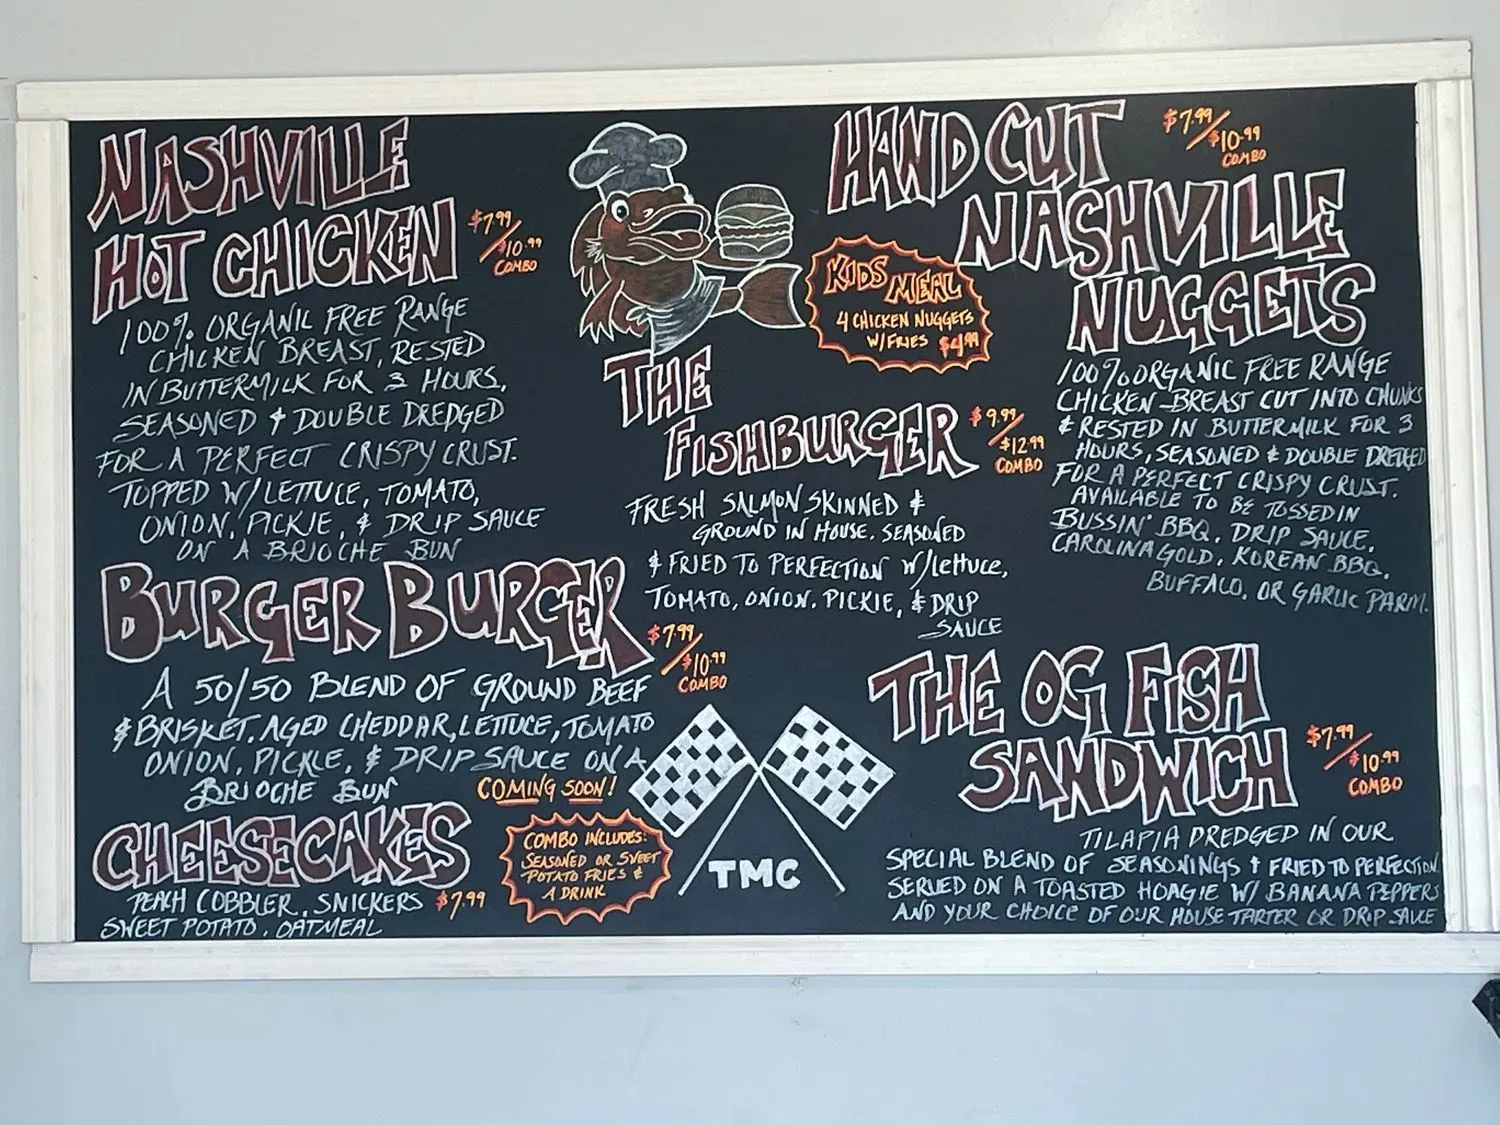 NASHVILLE
HOT CHICKEN
$7.99/$10.99
COMBO
100% ORGANIC FREE RANGE
CHICKEN BREAST, RESTED
IN BUTTERMILK FOR 3 HOURS,
SEASONED & DOUBLE DREDGED
FOR A PERFECT CRISPY CRUST.
TOPPED W/LETTUCE, TOMATO,
ONION, PICKLE, & DRIP SAUCE
ON A BRIOCHE BUN
BURGER BURGER
$7.99/$10.99
COMBO
A 50/50 BLEND OF GROUND BEEF
& BRISKET. AGED CHEDDAR, LETTUCE, TOMATO
ONION, PICKLE, & DRIP SAUCE ON A
BRIOCHE BUN
COMING SOON!
CHEESECAKES
PEACH COBBLER, SNICKERS $7.99
SWEET POTATO, OATMEAL
COMBO INCLUDES:
SEASONED OR SWEET
POTATO FRIES &
A DRINK
THE
FISHBURGER
$9.99/$12.99
COMBO
FRESH SALMON SKINNED &
GROUND IN HOUSE. SEASONED
& FRIED TO PERFECTION W/lettuce,
TOMATO, ONION, PICKLE, & DRIP
SAUCE
TMC
KIDS MEAL
4 CHICKEN NUGGETS
W/FRIES $4.99
HAND CUT
NASHVILLE
NUGGETS
$7.99/$10.99
COMBO
100% ORGANIC FREE RANGE
CHICKEN BREAST CUT INTO CHUNKS
& RESTED IN BUTTERMILK FOR 3
HOURS, SEASONED & DOUBLE DREDGED
FOR A PERFECT CRISPY CRUST.
AVAILABLE TO BE TOSSED IN
BUSSIN' BBQ, DRIP SAUCE,
CAROLINA GOLD, KOREAN BBQ,
BUFFALO, OR GARLIC PARM.
THE OG FISH
SANDWICH
$7.99/$10.99
COMBO
TILAPIA DREDGED IN OUR
SPECIAL BLEND OF SEASONINGS & FRIED TO PERFECTION
SERVED ON A TOASTED HOAGIE W/ BANANA PEPPERS
AND YOUR CHOICE OF OUR HOUSE TARTER OR DRIP SAUCE